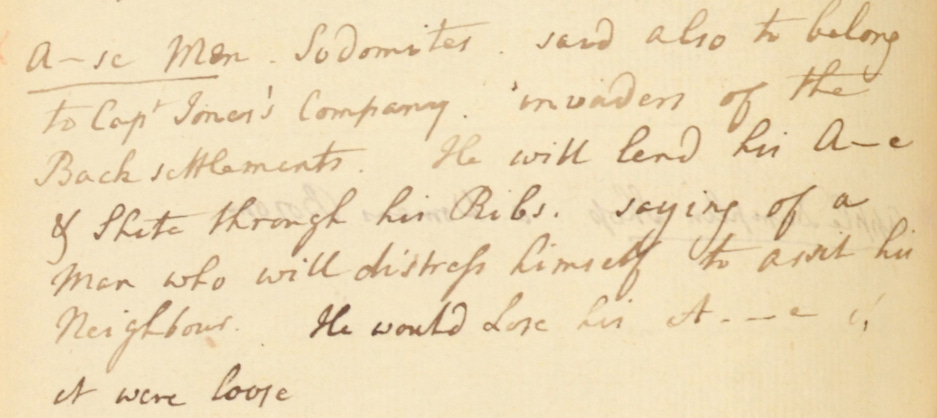 A-se Men. Sodomites. said also to belong
to Capt Jones's Company. invaders of the
Back settlements. He will lend his A-e
& Shite through his Ribs. saying of a
Man who will distress himself to assist his
Neighbour. He would Lose his A---e if
it were loose